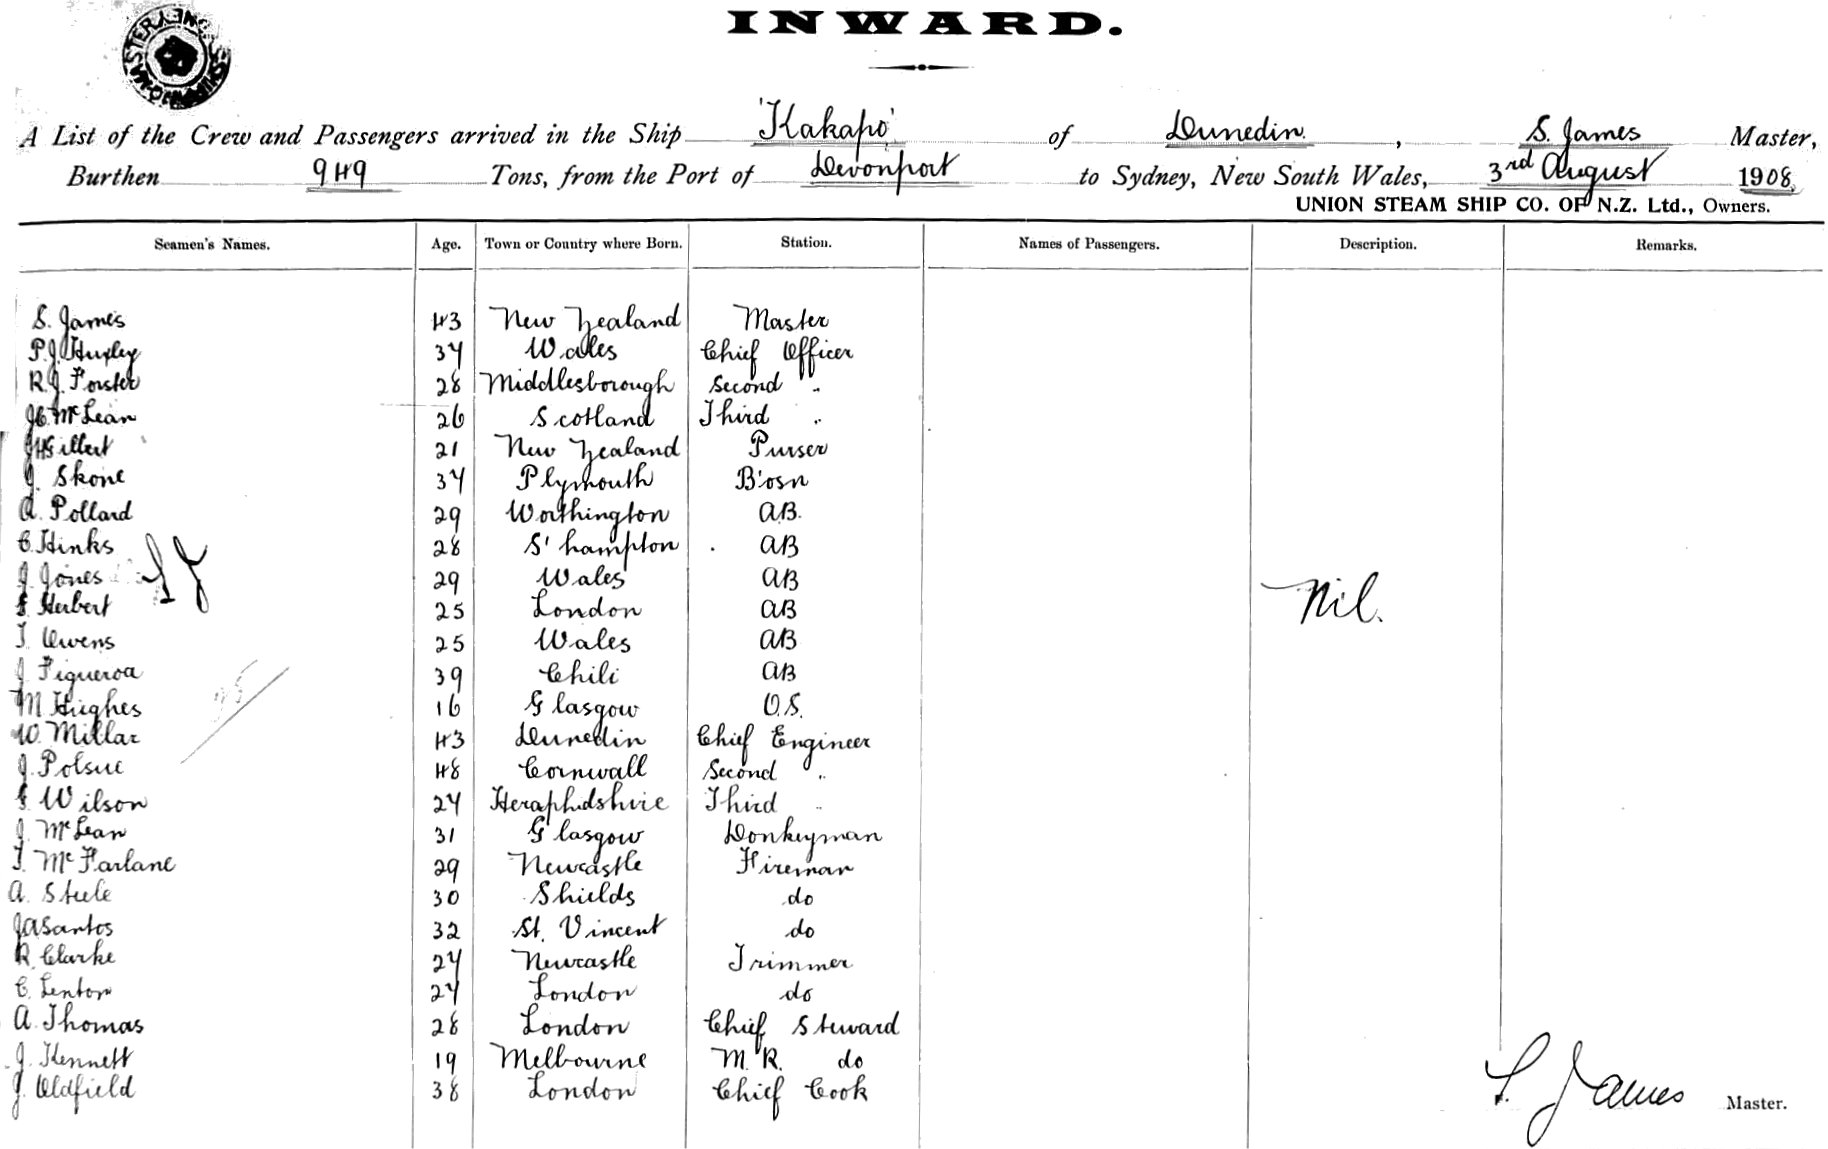 SHIPPING MASTER SYDNEY
INWARD.
A List of the Crew and Passengers arrived in the Ship 'Kakapo' of Dunedin, S. James Master,
Burthen 949 Tons, from the Port of Devonport to Sydney, New South Wales, 3rd August 1908.
UNION STEAM SHIP CO. OF N.Z. Ltd., Owners.
Seamen's Names. Age. Town or Country where Born. Station. Names of Passengers. Description. Remarks.
S. James 43 New Zealand Master
P.J. Huxley 34 Wales Chief Officer
R.J. Forster 28 Middlesborough Second "
J.C. McLean 26 Scotland Third "
J H Gilbert 21 New Zealand Purser
J. Skone 34 Plymouth B'osn
A. Pollard 29 Worthington A.B.
C. Hinks 28 S'hampton AB
J. Jones 29 Wales AB
Nil.
F. Herbert 25 London AB
T. Owens 25 Wales AB
J. Figueroa 39 Chili AB
M Hughes 16 Glasgow O.S.
W. Millar 43 Dunedin Chief Engineer
J. Polsue 48 Cornwall Second "
Wilson 24 Third "
J. McLean 31 Glasgow Donkeyman
T. McFarlane 29 Newcastle Fireman
A. Steele 30 Shields do
J A Santos 32 St. Vincent do
R. Clarke 24 Newcastle Trimmer
C. Lenton 24 London do
A. Thomas 28 London Chief Steward
J. Kennett 19 Melbourne M.R. do
J. Oldfield 38 London Chief Cook
S. James Master.